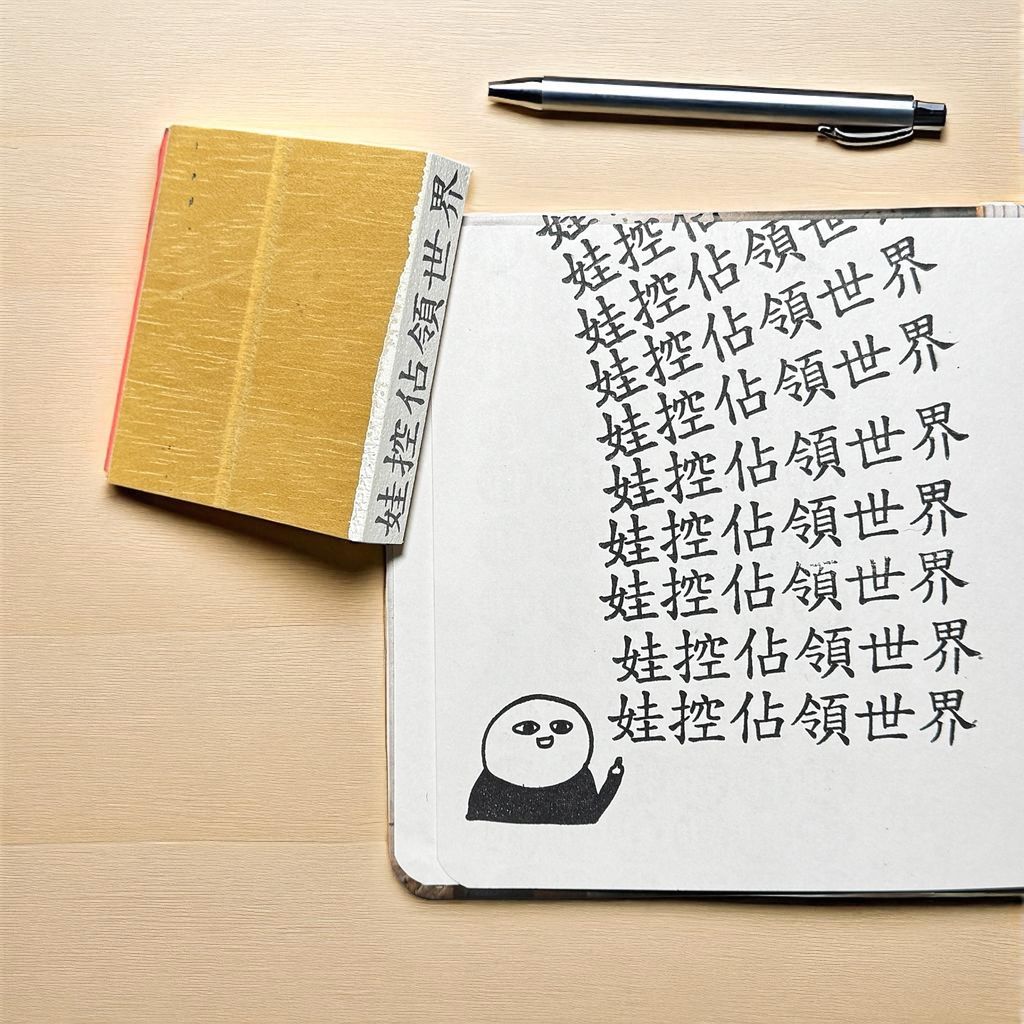 娃控佔領世界
娃
娃控佔
娃控佔領世
娃控佔領世界
娃控佔領世界
娃控佔領世界
娃控佔領世界
娃控佔領世界
娃控佔領世界
娃控佔領世界